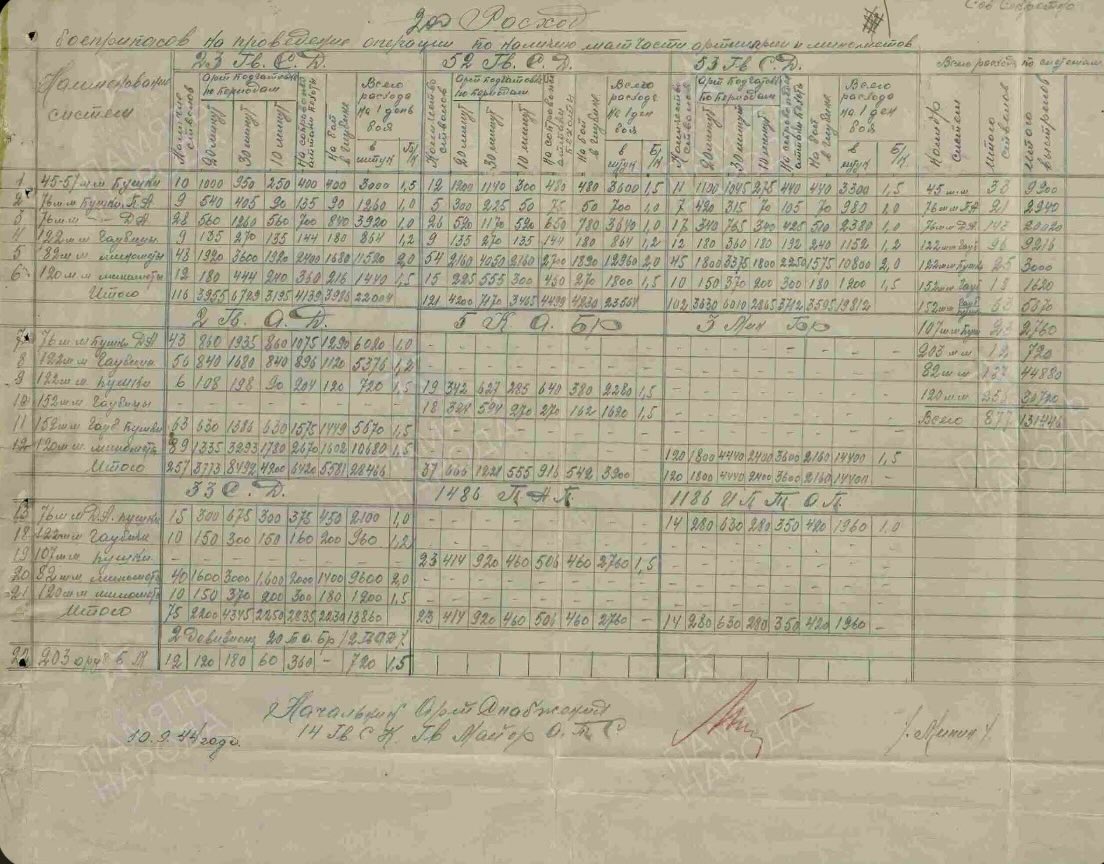 Сов Секретно
Расход
боеприпасов на проведение операции по наличию матчасти артиллерии и минометов
Наименование систем
23 Гв. С. Д.
52 Гв. С. Д.
53 Гв С. Д.
Всего расхода по системам
Количество стволов
Арт подготовка по периодам
20 минут
30 минут
10 минут
На бой в глубине
Всего расхода на 1 день боя
в штук
Б/К
Количество стволов
Арт подготовка по периодам
20 минут
30 минут
10 минут
На бой в глубине
Всего расхода на 1 день боя
в штук
Б/К
Количество стволов
Арт подготов по периодам
20 минут
30 минут
10 минут
На бой в глубине
Всего расхода на 1 день боя
в штук
Б/К
Итого стволов
Итого выстрелов
1 45-57 мм пушки 10 1000 950 250 400 400 3000 1,5 12 1200 1140 300 480 480 3600 1,5 11 1100 1045 275 440 440 3300 1,5 45 м.м 9900
2 76 мм пушки П.А 9 540 405 90 135 90 1260 1,0 5 300 225 50 75 50 700 1,0 7 420 315 70 105 70 980 1,0 76мм ПА 21 2940
3 76 мм —"— ДА 28 560 1260 560 700 840 3920 1,0 26 520 1170 520 650 780 3640 1,0 17 340 765 340 425 510 2380 1,0 76мм ДА
4 122 мм гаубицы 9 135 270 135 144 180 864 1,2 9 135 270 135 144 180 864 1,2 12 180 360 180 192 240 1152 1,2 122мм гауб 96 9216
5 82 мм минометы 48 1920 3600 1920 2400 1680 11520 2,0 54 2160 4050 2160 2700 1890 12960 2,0 45 1800 3375 1800 2250 1575 10800 2,0 122мм пушк 25 3000
6 120 мм минометы 12 180 444 240 360 216 1440 1,5 15 225 555 300 450 270 1800 1,5 10 150 370 200 300 180 1200 1,5 152мм гауб 18 1620
Итого 116 3955 6729 3195 4139 22004 121 4200 7410 3465 4499 23564 102 3630 6010 2865 3712 3595 19812 152мм 63 5670
2 Гв. А. Д.
5 К А. Бр
3 Мин Бр
107мм пуш 23 2760
7 76 мм пушки ДА 43 860 1935 860 1075 1290 6020 1,0 - - - - - - - - - - - - - - - - 203 мм 12 720
8 122 мм гаубицы 56 840 1680 840 896 1120 5376 1,2 - - - - - - - - - - - - - - - - 82 мм 187 44880
9 122 мм пушки 6 108 198 90 204 120 720 1,5 19 342 627 285 640 380 2280 1,5 - - - - - - - - 120 мм
10 152 мм гаубицы - - - - - - - - 18 324 594 270 270 162 1620 1,5 - - - - - - - - Всего 877 131446
11 152 мм гауб пушки 63 630 1386 630 1575 1449 5670 1,5 - - - - - - - - - - - - - - - -
12 120 мм минометы 89 1335 3293 1780 2670 1602 10680 1,5 - - - - - - - - 120 1800 4440 2400 3600 2160 14400 1,5
Итого 257 3773 8492 4200 6420 5581 28466 37 666 1221 555 916 542 3900 120 1800 4440 2400 3600 2160 14400 -
33 С. Д.
1486 П А П.
1186 И П Т А П.
76 мм Д.А. пушки 15 300 675 300 375 450 2100 1,0 - - - - - - - - 14 280 630 280 350 420 1960 1,0
18 122 мм гаубицы 10 150 300 150 160 200 960 1,2 - - - - - - - - - - - - - - - -
19 107 мм пушки - - - - - - - - 23 414 920 460 506 460 2760 1,5 - - - - - - - -
20 82 мм минометы 40 1600 3000 1600 2000 1400 9600 2,0 - - - - - - - - - - - - - - - -
21 120 мм минометы 10 150 370 200 300 180 1200 1,5 - - - - - - - - - - - - - - - -
Итого 75 2200 4345 2250 2835 2230 13860 23 414 920 460 506 460 2760 - 14 280 630 280 350 420 1960 -
2 Дивизион
22 203 б М 12 120 180 60 360 - 720 1,5
Начальник Арт Снабжения
14 Гв С К. Гв Майор
44 года.
ПАМЯТЬ НАРОДА